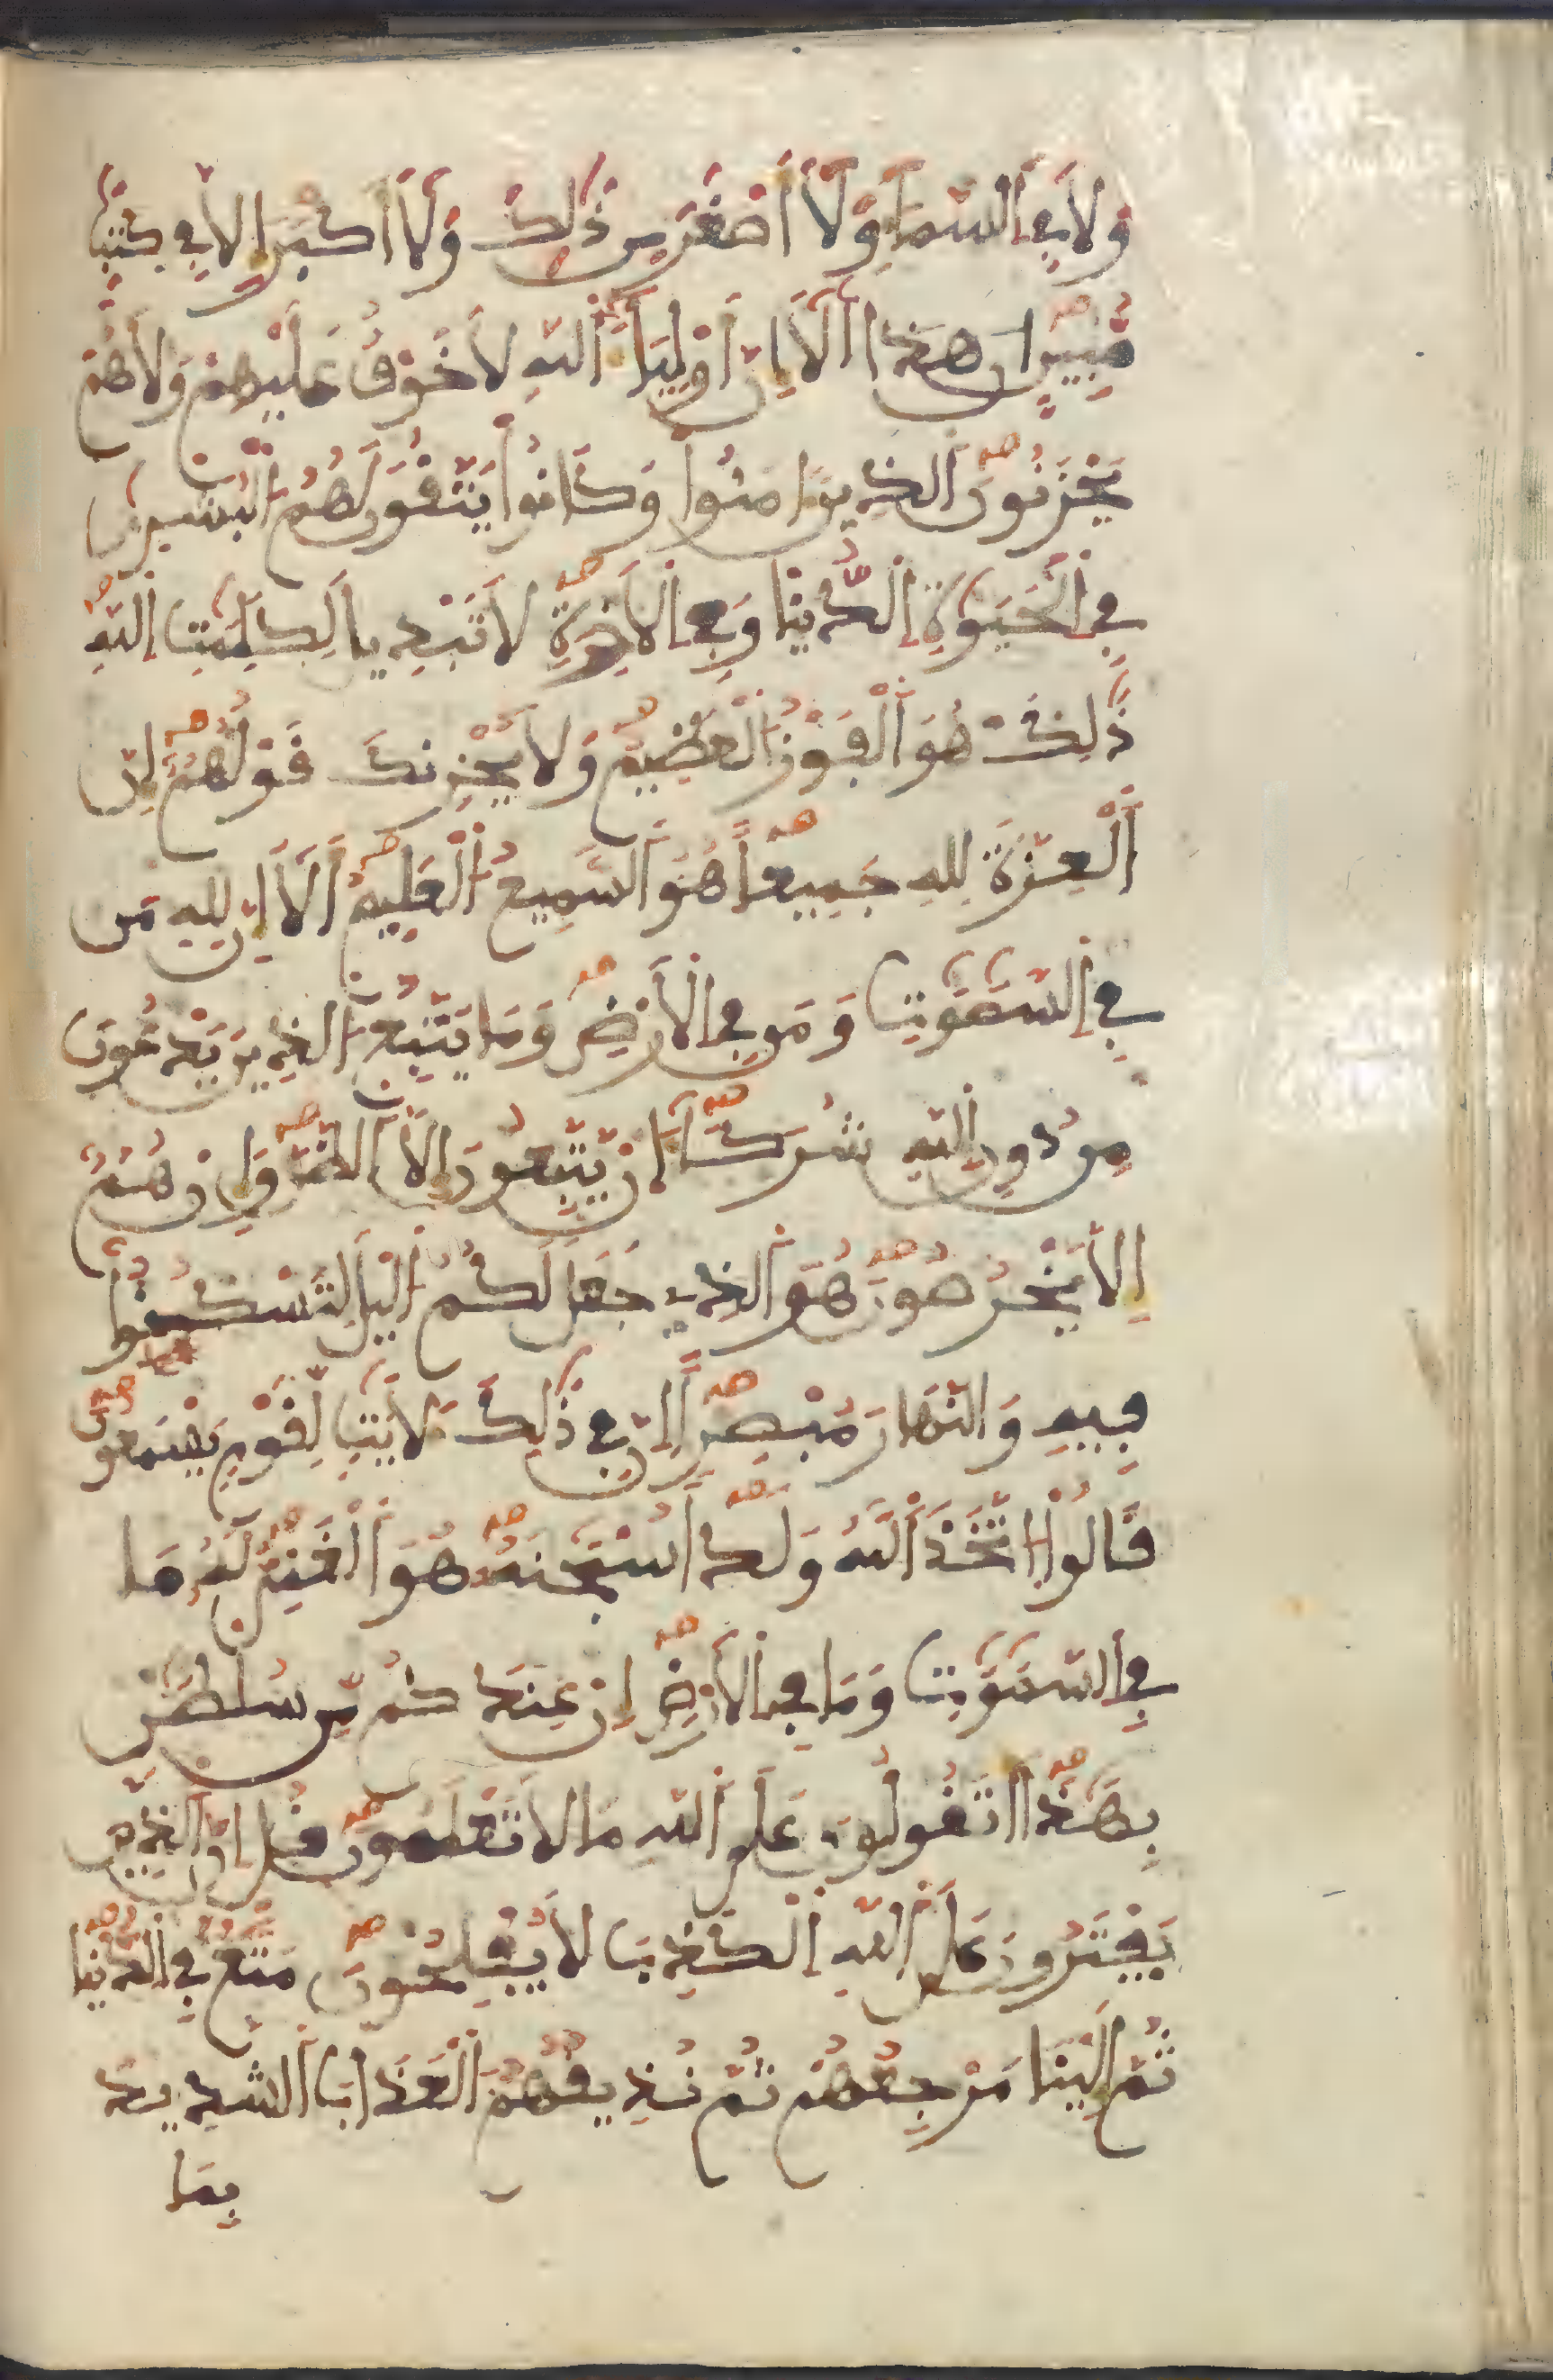 وَلَا فِي اَ۬لسَّمَآءِ وَلَآ أَصْغَرَ مِن ذَٰلِكَ وَلَآ أَكْبَرَ إِلَّا فِي كِتَٰبٖ
مُّبِينٍ ان هَٰذَا أَلَآ إِنَّ أَوْلِيَآءَ اَ۬للَّهِ لَا خَوْفٌ عَلَيْهِمْ وَلَا هُمْ
يَحْزَنُونَ اَ۬لذِينَ ءَامَنُواْ وَكَانُواْ يَتَّقُونَ لَهُمُ اُ۬لْبُشْر۪ىٰ
فِي اِ۬لْحَيَوٰةِ اِ۬لدُّنْيَا وَفِي اِ۬لْأَخِرَةِ لَا تَبْدِيلَ لِكَلِمَٰتِ اِ۬للَّهِ
ذَٰلِكَ هُوَ اَ۬لْفَوْزُ اُ۬لْعَظِيمُ وَلَا يُحْزِنكَ قَوْلُهُمْ إِنَّ
اَ۬لْعِزَّةَ لِلهِ جَمِيعاً هُوَ اَ۬لسَّمِيعُ اُ۬لْعَلِيمُ أَلَآ إِنَّ لِلهِ مَن
فِي اِ۬لسَّمَٰوَٰتِ وَمَن فِي اِ۬لْأَرْضِ وَمَا يَتَّبِعُ اُ۬لذِينَ يَدْعُونَ
مِن دُونِ اِ۬للَّهِ شُرَكَآءَ انْ يَّتَّبِعُونَ إِلَّا اَ۬لظَّنَّ وَإِنْ هُمُۥٓ
إِلَّا يَخْرُصُونَ هُوَ اَ۬لذِي جَعَلَ لَكُمُ اُ۬ليْلَ لِتَسْكُنُواْ
فِيهِ وَالنَّهَارَ مُبْصِراً إِنَّ فِي ذَٰلِكَ لَأَيَٰتٖ لِّقَوْمٖ يَسْمَعُونَ
قَالُواْ اُ۪تَّخَذَ اَ۬للَّهُ وَلَداً سُبْحَٰنَهُۥ هُوَ اَ۬لْغَنِيُّ لَهُۥ مَا
فِي اِ۬لسَّمَٰوَٰتِ وَمَا فِي اِ۬لْأَرْضِ إِنْ عِندَكُم مِّن سُلْطَٰنِۢ
بِهَٰذَآ أَتَقُولُونَ عَلَى اَ۬للَّهِ مَا لَا تَعْلَمُونَ قُلِ اِنَّ اَ۬لذِينَ
يَفْتَرُونَ عَلَى اَ۬للَّهِ اِ۬لْكَذِبَ لَا يُفْلِحُونَ مَتَٰعٌ فِي اِ۬لدُّنْيَا
ثُمَّ إِلَيْنَا مَرْجِعُهُمْ ثُمَّ نُذِيقُهُمُ اُ۬لْعَذَابَ اَ۬لشَّدِيدَ
بِمَا